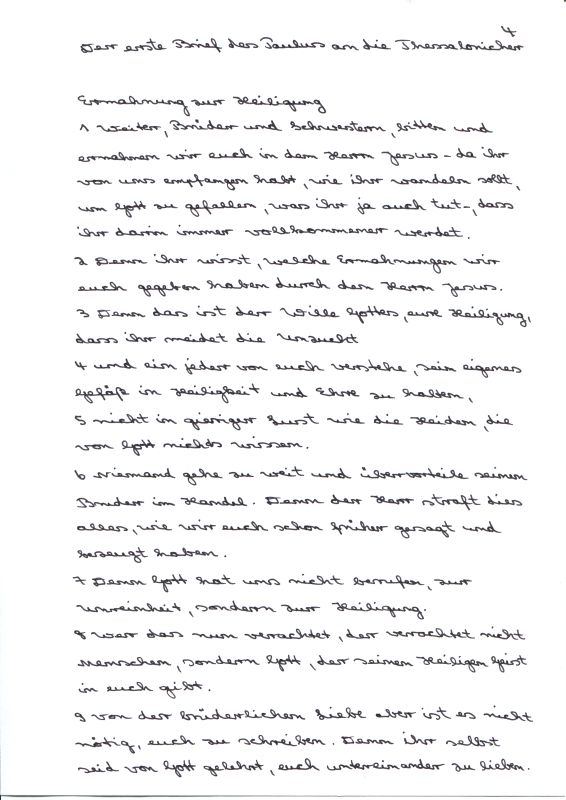 4
Der erste Brief des Paulus an die Thessalonicher
Ermahnung zur Heiligung
1 Weiter, Brüder und Schwestern, bitten und
ermahnen wir euch in dem Herrn Jesus – da ihr
von uns empfangen habt, wie ihr wandeln sollt,
um Gott zu gefallen, was ihr ja auch tut –, dass
ihr darin immer vollkommener werdet.
2 Denn ihr wisst, welche Ermahnungen wir
euch gegeben haben durch den Herrn Jesus.
3 Denn das ist der Wille Gottes, eure Heiligung,
dass ihr meidet die Unzucht
4 und ein jeder von euch verstehe, sein eigenes
Gefäß in Heiligkeit und Ehre zu halten,
5 nicht in gieriger Lust wie die Heiden, die
von Gott nichts wissen.
6 Niemand gehe zu weit und übervorteile seinen
Bruder im Handel. Denn der Herr straft dies
alles, wie wir euch schon früher gesagt und
bezeugt haben.
7 Denn Gott hat uns nicht berufen, zur
Unreinheit, sondern zur Heiligung.
8 Wer das nun verachtet, der verachtet nicht
Menschen, sondern Gott, der seinen Heiligen Geist
in euch gibt.
9 Von der brüderlichen Liebe aber ist es nicht
nötig, euch zu schreiben. Denn ihr selbst
seid von Gott gelehrt, euch untereinander zu lieben.